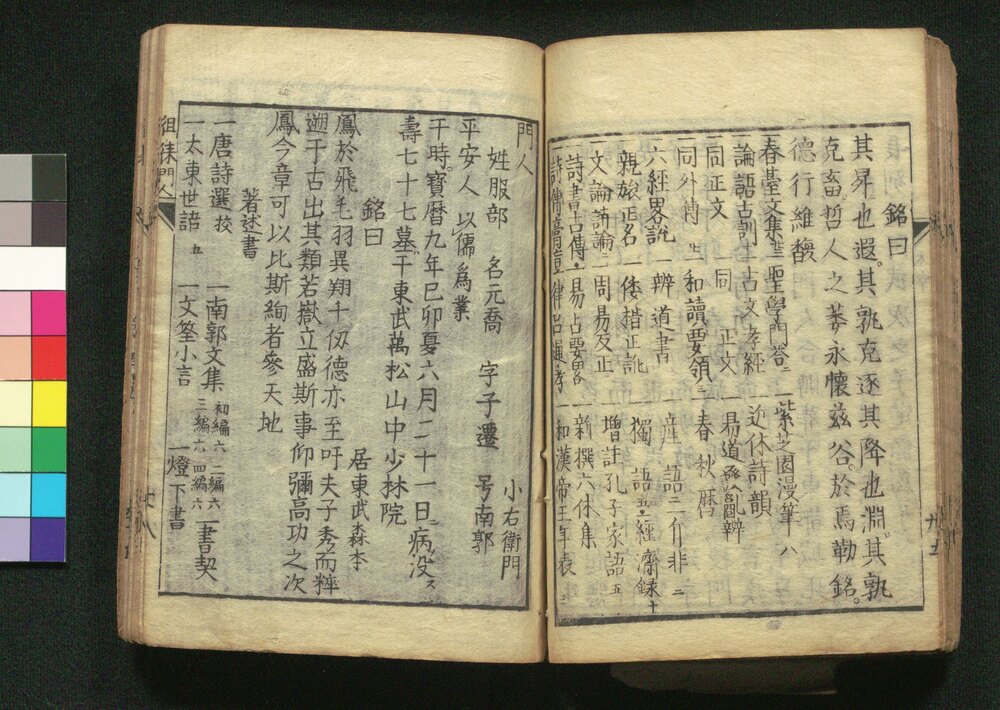 銘曰
其昇也遐。其孰克逐其降也淵。其孰
克畜。哲人之葬永懐茲谷。於焉勒銘。
德行維馥
一春臺文集 一聖學問答二 一紫芝園漫筆 八
一論語古訓 一古文孝經 一近体詩韻
一同正文 一同 正文 一易道撥亂辨
一同外傳 一和讀要領三 一春秋暦
一六經畧説 一辨道書 一産語二 一斥非 二
一親族正名 一倭楷正訛 一獨語 一經濟録 十
一文論詩論二 一周易反正 一増註孔子家語 五
一詩書古傳 一易占要畧 一新撰六体集
一律呂通考 一和漢帝王年表
門人
小右衛門
姓服部 名元喬 字子遷 号南郭
平安人 以儒為業 居東武森本
干時。寶暦九年己卯夏六月二十一日病没ス
壽七十七墓干東武萬松山中少林院
銘曰
鳳於飛毛羽異翔十仭德亦至吁夫子秀而粹
遡于古出其類若嶽立盛斯事仰彌高功之次
鳳今章可以比斯絢者參天地
著述書
一唐詩選 挍 一南郭文集 初編六 二編六 三編六 四編六 一書契
一大東世語 五 一文筌小言 一燈下書
徂徠門人